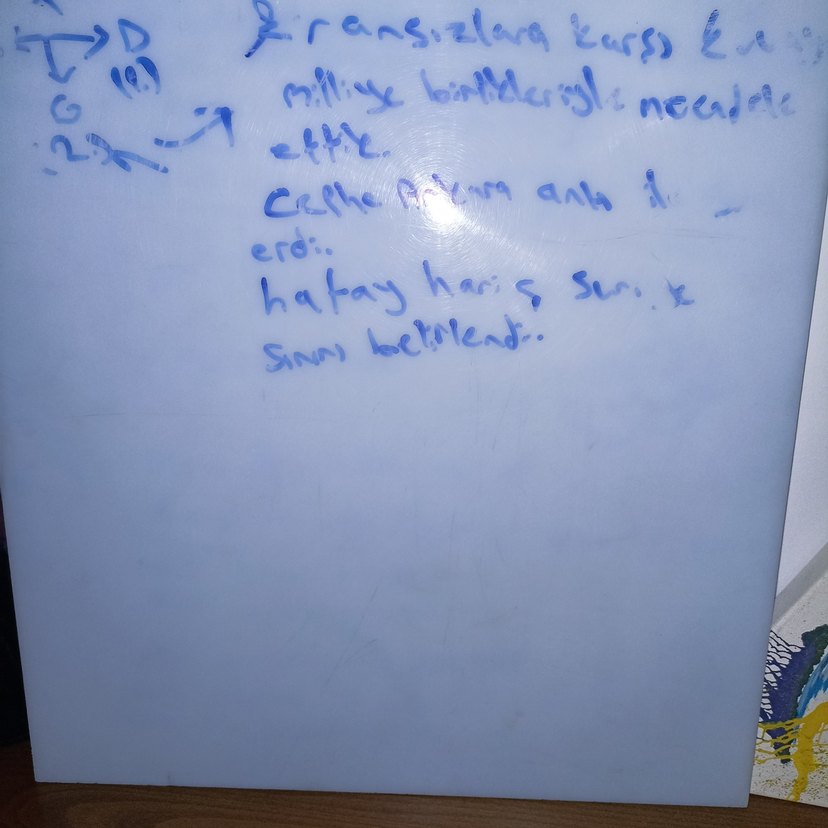 D
(1.)
G
Fransızlara karşı
milliye birlikleriyle mücadele
ettik.
Cephe Ankara antı
erdi.
hatay hariç
sınırı belirlendi.